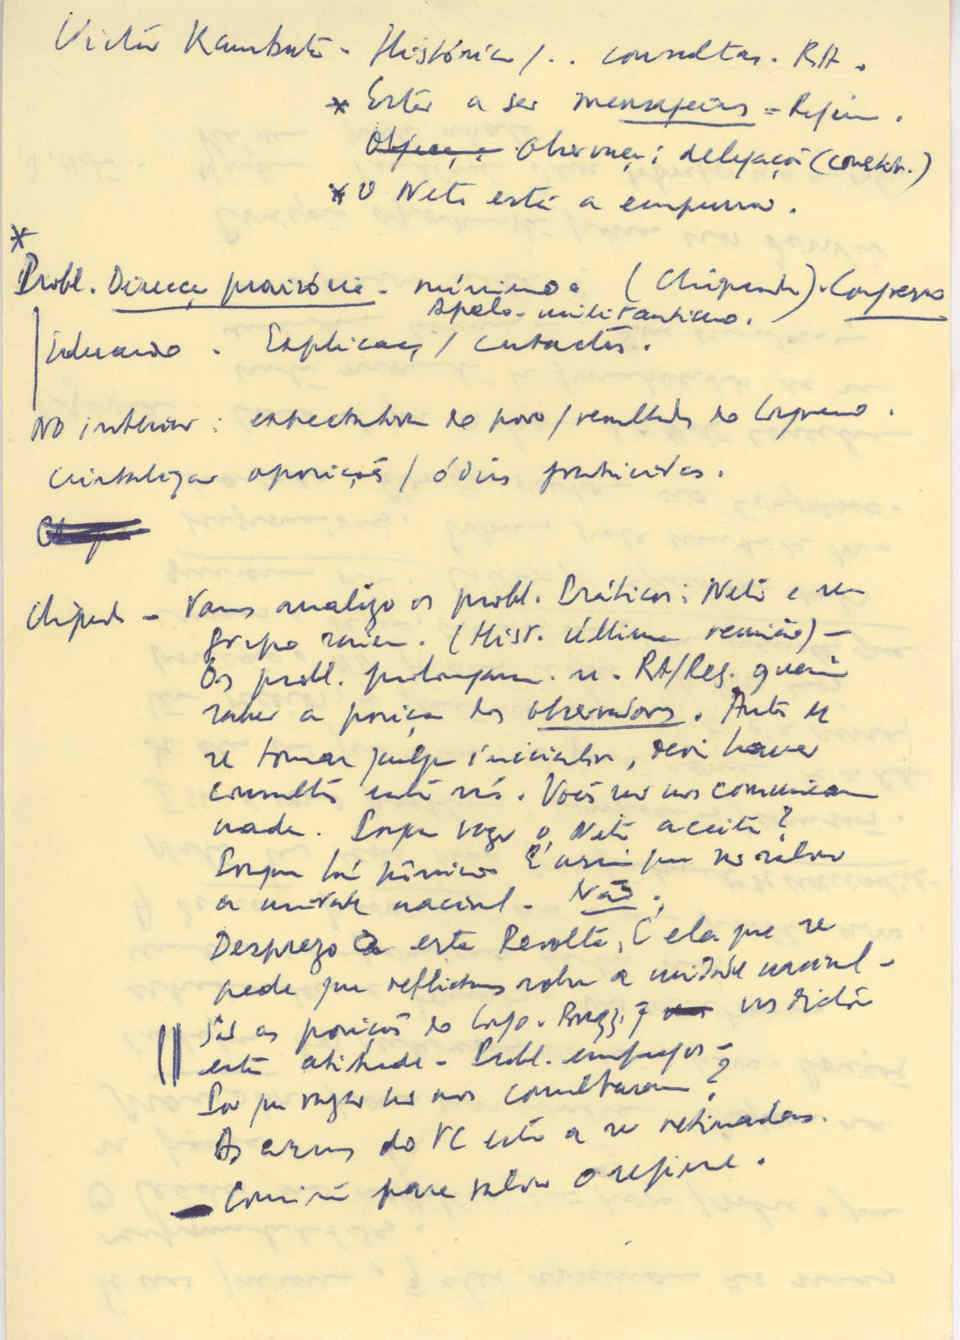 Victor Kambuta - História/.. consultas. RA.
* Estar a ser mensageiros =
Observação; delegação (
* O Neto está a empurrar.
*
Probl. Direcção provisória - mínimo. (Chipenda). Congresso
Apelo - militantismo.
Eduardo. Explicaç/contactos.
No interior: expectativa do povo/resultado do Congresso.
cristalizar oposições/ódios
Chipenda - Vamos analizar os probl. Práticos; Neto e seu
grupo (Hist. última reunião) -
Os probl. prolongam-se. RA/Reg. querem
saber a posição dos observadores. Antes de
se tomar iniciativa, deve haver
consulta entre nós. Vocês não nos comunicam
nada. Porque razão o Neto aceita?
Porque há É assim que se salva
a unidade nacional - Não;
Desprezo a esta Revolta, é ela que se
pede que reflictamos sobre a unidade nacional -
São as posições do Congo-Brazz. q nos ditam
esta atitude - Probl. empregos -
Por que razão não nos consultaram?
As armas do VC estão a ser retiradas.
- Comité para salvar o regime.